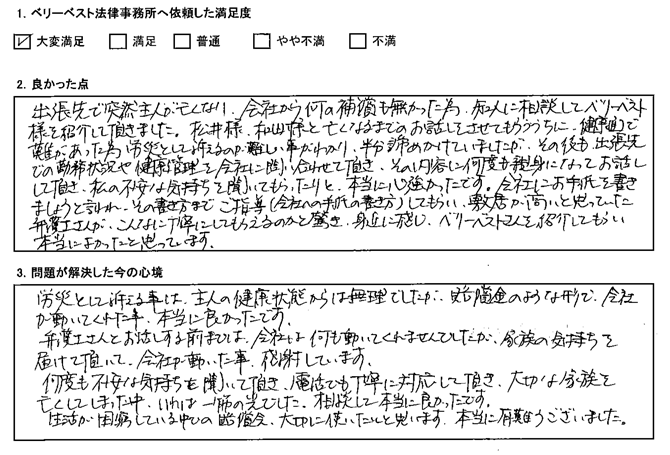 1. ベリーベスト法律事務所へ依頼した満足度
大変満足 満足 普通 やや不満 不満
2. 良かった点
出張先で突然主人が亡くなり、会社から何の補償も無かった為、知人に相談してベリーベスト
様を紹介して頂きました。松井様、和田様と亡くなるまでのお話しをさせてもらううちに、健康面で
難があった為、労災として訴えるのが難しい事がわかり、半分諦めかけていましたが、その後も出張先
での勤務状況や健康管理を会社に問い合わせて頂き、その内容に何度も親身になってお話し
して頂き、私の不安な気持ちを聞いてもらったりと、本当に心強かったです。会社にお手紙を書き
ましょうと言われ、その書き方までご指導(会社への手紙の書き方)してもらい、敷居が高いと思っていた
弁護士さんが、こんなに丁寧にしてもらえるのかと驚き、身近に感じ、ベリーベストさんを紹介してもらい
本当によかったと思っています。
3. 問題が解決した今の心境
労災として訴える事は、主人の健康状態からは無理でしたが、見舞金のような形で、会社
が動いてくれた事、本当に良かったです。
弁護士さんとお話しする前までは、会社は何も動いてくれませんでしたが、家族の気持ちを
届けて頂いて、会社が動いた事、感謝しています。
何度も不安な気持ちを聞いて頂き、電話でも丁寧に対応して頂き、大切な家族を
亡くしてしまった中、 一筋の光でした。相談して本当に良かったです。
生活が困窮している中での 、大切に使いたいと思います。本当に有難うございました。